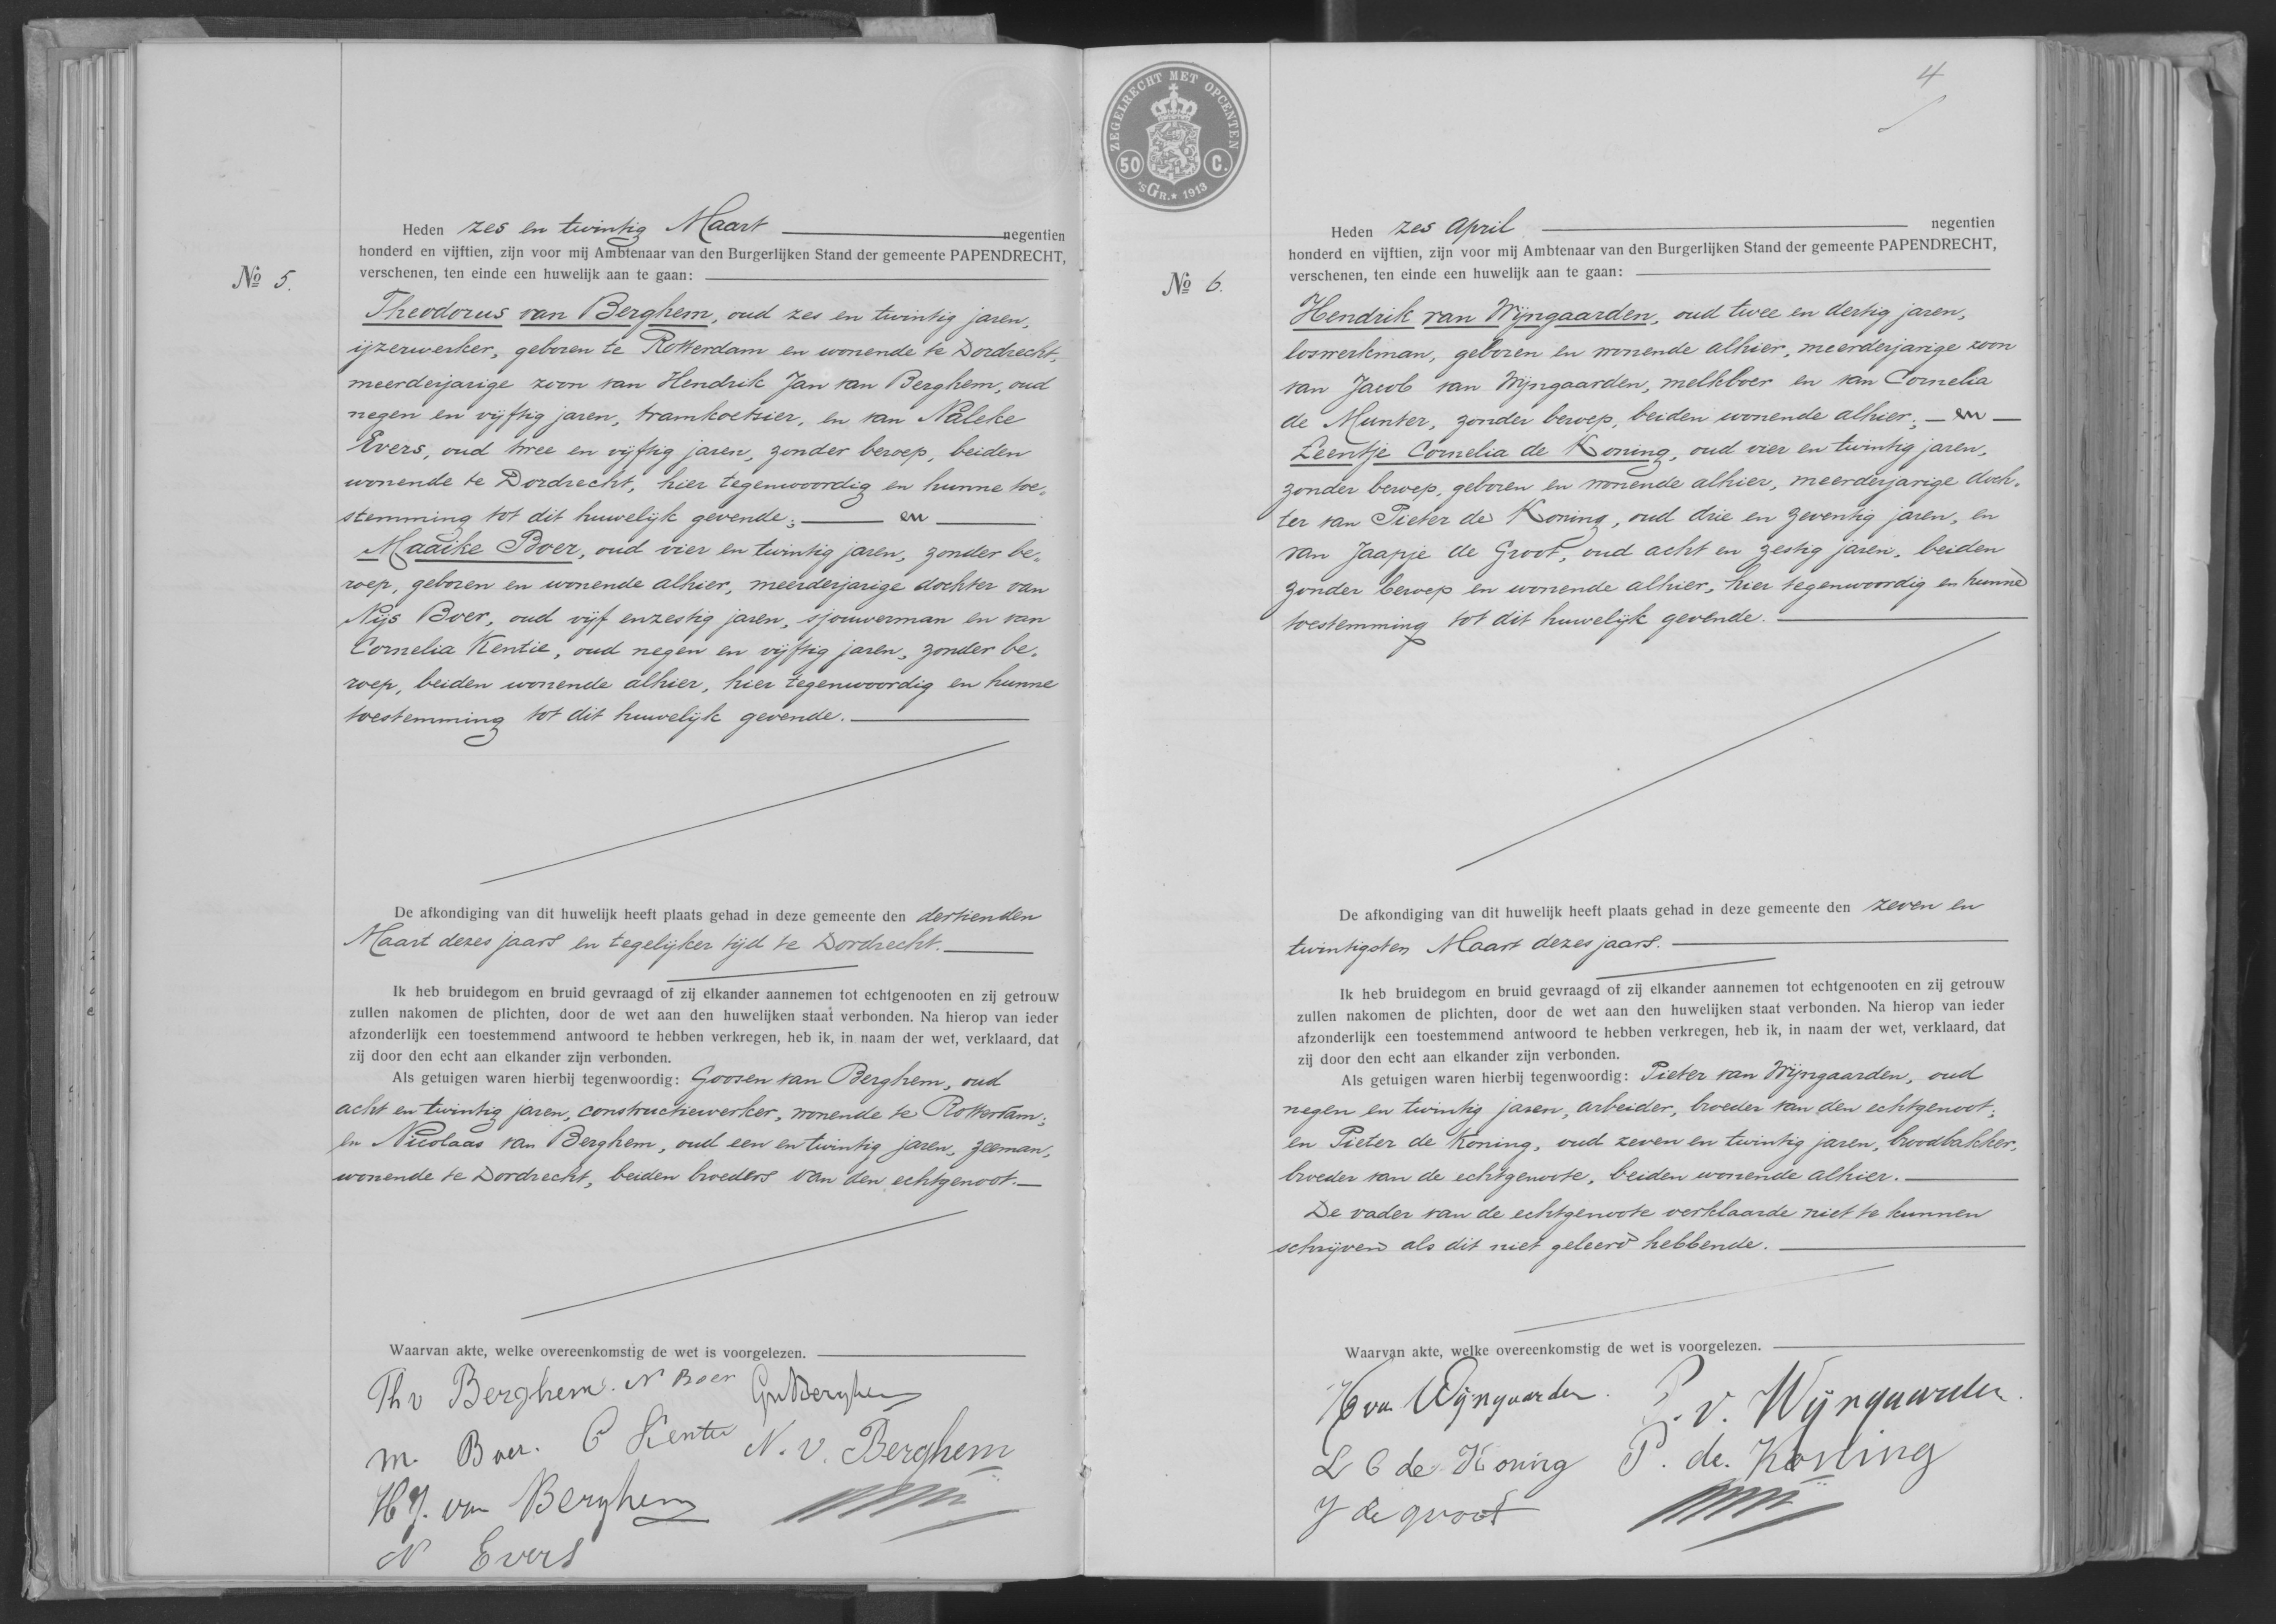 Heden zes en twintig Maart negentien
honderd en vijftien, zijn voor mij Ambtenaar van den Burgerlijken Stand der gemeente PAPENDRECHT,
verschenen, ten einde een huwelijk aan te gaan:
No 5.
Theodorus van Berghem, oud zes en twintig jaren,
ijzerwerker, geboren te Rotterdam en wonende te Dordrecht,
meerderjarige zoon van Hendrik Jan van Berghem, oud
negen en vijftig jaren, tramkoetsier, en van Naleke
Evers, oud twee en vijftig jaren, zonder beroep, beiden
wonende te Dordrecht, hier tegenwoordig en hunne toe„
stemming tot dit huwelijk gevende; en
Maaike Boer, oud vier en twintig jaren, zonder be„
roep, geboren en wonende alhier, meerderjarige dochter van
Nijs Boer, oud vijf en zestig jaren, sjouwerman en van
Cornelia Kentie, oud negen en vijftig jaren, zonder be„
roep, beiden wonende alhier, hier tegenwoordig en hunne
toestemming tot dit huwelijk gevende.
De afkondiging van dit huwelijk heeft plaats gehad in deze gemeente den dertienden
Maart dezes jaars en tegelijker tijd te Dordrecht.
Ik heb bruidegom en bruid gevraagd of zij elkander aannemen tot echtgenooten en zij getrouw
zullen nakomen de plichten, door de wet aan den huwelijken staat verbonden. Na hierop van ieder
afzonderlijk een toestemmend antwoord te hebben verkregen, heb ik, in naam der wet, verklaard, dat
zij door den echt aan elkander zijn verbonden.
Als getuigen waren hierbij tegenwoordig: Goosen van Berghem, oud
acht en twintig jaren, constructiewerker, wonende te Rotterdam;
en Nicolaas van Berghem, oud een en twintig jaren, zeeman,
wonende te Dordrecht, beiden broeders van den echtgenoot.
Waarvan akte, welke overeenkomstig de wet is voorgelezen.
Th v Berghem. N Boer GvBerghem
M. Boer. C Kentie N. v. Berghem
HJ. van Berghem
N Evers
ZEGELRECHT MET OPCENTEN
50 C.
'sGR.* 1913
4
Heden zes April negentien
honderd en vijftien, zijn voor mij Ambtenaar van den Burgerlijken Stand der gemeente PAPENDRECHT,
verschenen, ten einde een huwelijk aan te gaan:
No 6.
Hendrik van Wijngaarden, oud twee en dertig jaren,
loswerkman, geboren en wonende alhier, meerderjarige zoon
van Jacob van Wijngaarden, melkboer en van Cornelia
de Munter, zonder beroep, beiden wonende alhier; en
Leentje Cornelia de Koning, oud vier en twintig jaren,
zonder beroep, geboren en wonende alhier, meerderjarige doch„
ter van Pieter de Koning, oud drie en zeventig jaren, en
van Jaapje de Groot, oud acht en zestig jaren, beiden
zonder beroep en wonende alhier, hier tegenwoordig en hunne
toestemming tot dit huwelijk gevende.
De afkondiging van dit huwelijk heeft plaats gehad in deze gemeente den zeven en
twintigsten Maart dezes jaars.
Ik heb bruidegom en bruid gevraagd of zij elkander aannemen tot echtgenooten en zij getrouw
zullen nakomen de plichten, door de wet aan den huwelijken staat verbonden. Na hierop van ieder
afzonderlijk een toestemmend antwoord te hebben verkregen, heb ik, in naam der wet, verklaard, dat
zij door den echt aan elkander zijn verbonden.
Als getuigen waren hierbij tegenwoordig: Pieter van Wijngaarden, oud
negen en twintig jaren, arbeider, broeder van den echtgenoot;
en Pieter de Koning, oud zeven en twintig jaren, broodbakker,
broeder van de echtgenoote, beiden wonende alhier.
De vader van de echtgenoote verklaarde niet te kunnen
schrijven als dit niet geleerd hebbende.
Waarvan akte, welke overeenkomstig de wet is voorgelezen.
H van Wijngaarden. P. v. Wijngaarden.
L C de Koning P. de. Koning
J de groot